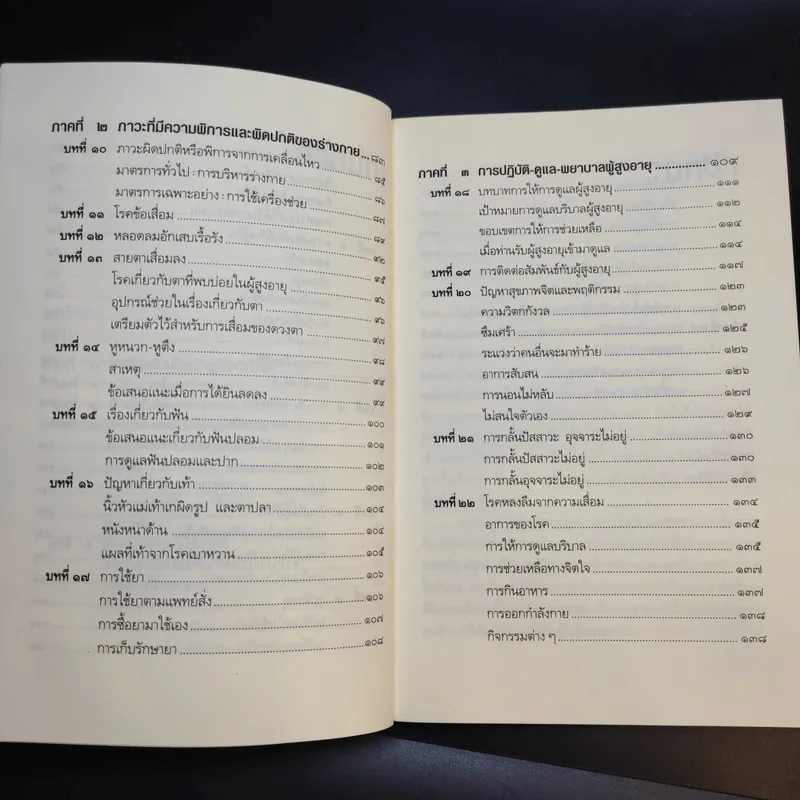 ภาคที่ ๒ ภาวะที่มีความพิการและผิดปกติของร่างกาย...๘๓
บทที่ ๑๐ ภาวะผิดปกติหรือพิการจากการเคลื่อนไหว
มาตรการทั่วไป : การบริหารร่างกาย ๘๕
มาตรการเฉพาะอย่าง : การใช้เครื่องช่วย ๘๖
บทที่ ๑๑ โรคข้อเสื่อม ๘๗
บทที่ ๑๒ หลอดลมอักเสบเรื้อรัง ๘๙
บทที่ ๑๓ สายตาเสื่อมลง ๙๕
โรคเกี่ยวกับตาที่พบบ่อยในผู้สูงอายุ ๙๖
อุปกรณ์ช่วยในเรื่องเกี่ยวกับตา ๙๖
เตรียมตัวไว้สำหรับการเสื่อมของดวงตา ๙๗
บทที่ ๑๔ หูหนวก-หูตึง ๙๘
สาเหตุ ๙๙
ข้อเสนอแนะเมื่อการได้ยินลดลง ๙๙
บทที่ ๑๕ เรื่องเกี่ยวกับฟัน ๑๐๐
ข้อเสนอแนะเกี่ยวกับฟันปลอม ๑๐๑
การดูแลฟันปลอมและปาก ๑๐๒
บทที่ ๑๖ ปัญหาเกี่ยวกับเท้า ๑๐๓
นิ้วหัวแม่เท้าเกผิดรูป และตาปลา ๑๐๔
หนังหนาด้าน ๑๐๔
แผลที่เท้าจากโรคเบาหวาน ๑๐๕
บทที่ ๑๗ การใช้ยา ๑๐๖
การใช้ยาตามแพทย์สั่ง ๑๐๖
การซื้อยามาใช้เอง ๑๐๗
การเก็บรักษายา ๑๐๘
ภาคที่ ๓ การปฏิบัติ-ดูแล-พยาบาลผู้สูงอายุ ๑๐๙
บทที่ ๑๘ บทบาทการให้การดูแลผู้สูงอายุ ๑๑๑
เป้าหมายการดูแลบริบาลผู้สูงอายุ ๑๑๒
ขอบเขตการให้การช่วยเหลือ ๑๑๔
เมื่อท่านรับผู้สูงอายุเข้ามาดูแล ๑๑๔
บทที่ ๑๙ การติดต่อสัมพันธ์กับผู้สูงอายุ ๑๑๗
บทที่ ๒๐ ปัญหาสุขภาพจิตและพฤติกรรม ๑๒๓
ความวิตกกังวล ๑๒๓
ซึมเศร้า ๑๒๕
ระแวงว่าคนอื่นจะมาทำร้าย ๑๒๖
อาการสับสน ๑๒๖
การนอนไม่หลับ ๑๒๗
ไม่สนใจตัวเอง ๑๒๙
บทที่ ๒๑ การกลั้นปัสสาวะ อุจจาระไม่อยู่ ๑๓๐
การกลั้นปัสสาวะไม่อยู่ ๑๓๐
การกลั้นอุจจาระไม่อยู่ ๑๓๓
บทที่ ๒๒ โรคหลงลืมจากความเสื่อม ๑๓๔
อาการของโรค ๑๓๕
การให้การดูแลบริบาล ๑๓๕
การช่วยเหลือทางจิตใจ ๑๓๗
การกินอาหาร ๑๓๗
การออกกำลังกาย ๑๓๘
กิจกรรมต่าง ๆ ๑๓๘